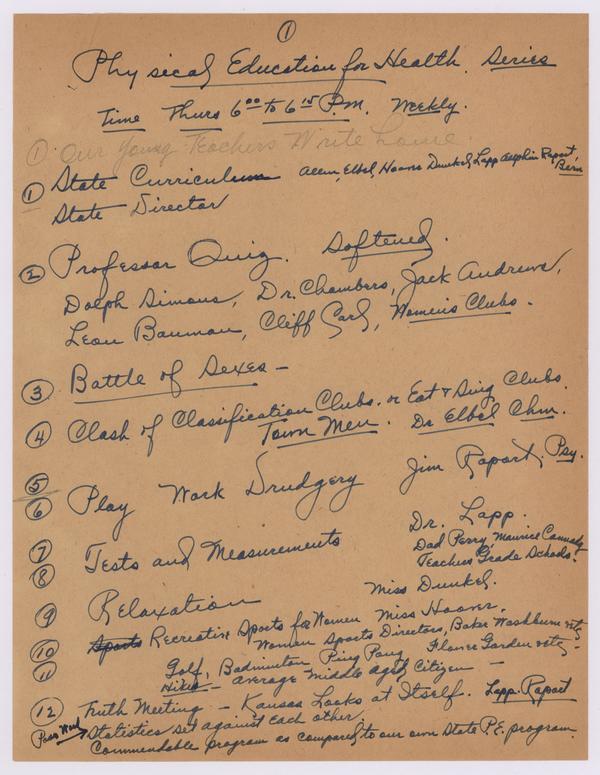 ①
Physical Education for Health Series
Time Thurs 6⁰⁰ to 6¹⁵ P.m. Weekly.
① Our Young Teachers Write home
① State Curriculum Allen, Elbel, Hoover Dunkel, Lapp Rapart,
State Director
② Professor Quiz. Softened.
Dolph Simons, Dr. Chambers, Jack Andrews,
Leon Bauman, Cliff Carl, Women's Clubs.
③ Battle of Sexes -
④ Clash of Classification Clubs. or Eat & Sing Clubs.
Town Men. Dr Elbel Chm.
⑤
⑥ Play Work Drudgery Jim Raport, Psy.
Dr. Lapp.
⑦ Tests and Measurements Dad Perry Maurice
⑧ Teachers Grade Schools.
Miss Dunkel.
⑨ Relaxation
⑩ Sports Recreative Sports for Women Miss Hoover.
Women Sports Directors, Baker Washburn etc
⑪ Golf, Badminton Ping Pong Flower Garden etc.
Hikes - average middle aged Citizen -
⑫ Truth Meeting - Kansas Looks at Itself. Lapp-Raport
Statistics set against each other.
Commendable program as compared to our own State P.E. program.